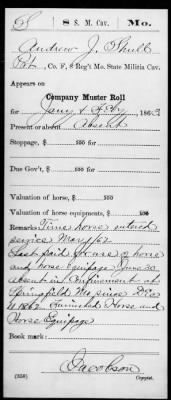 S | 8 S. M. Cav. | Mo.
Andrew J. Shull
Pvt., Co. F, 8 Reg't Mo. State Militia Cav.
Appears on
Company Muster Roll
for Jany & Feby, 1863
Present or absent Absent
Stoppage, $ 100 for
Due Gov't, $ 100 for
Valuation of horse, $ 100
Valuation of horse equipments, $ 100
Remarks: Time horse entered
service May 1/62
Last paid for use of horse
and horse Equipage June 30
absent in Confinement at
Springfield Mo since Dec
1862 Furnished Horse and
Horse Equipage
Book mark:
Jacobson
(358) Copyist.